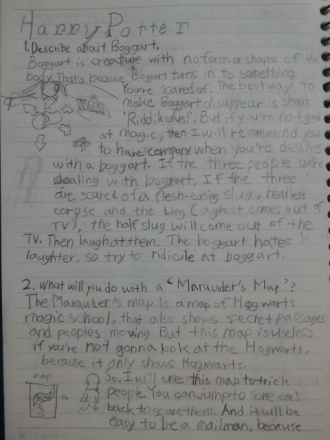 Harry Potter
1. Describe about Boggart.
Boggart is creature with no form or shape of the
body. That's because, Boggart turns in to something
You're scared of. The best way to
make Boggart disappear is shout
'Riddikulus!'. But if you're not good
at magic, then I will recommend you
to have company when you're dealing
with a boggart. If the three people
dealing with boggart. If the three
are scared of a flesh-eating slug, headless
corpse and the Ring (a ghost comes out of
TV), the half slug will come out of the
TV. Then laugh at them. The boggart hates
laughter, so try to ridicule at boggart.
2. What will you do with a "Marauder's Map"?
The Marauder's map is a map of Hogwarts
magic school, that also shows secret passages
and peoples moving. But this map is useless
if you're not gonna look at the Hogwarts,
because it only shows Hogwarts.
map
So, I will use this map to trick
people. You can jump to some one's
back to scare them. And it will be
easy to be a mailman, because